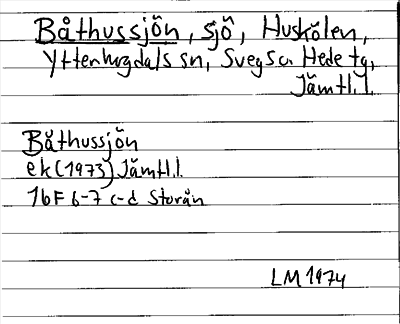 Båthussjön, sjö, Huskölen,
Ytterhogdals sn, Svegs o. Hede tg,
Jämtl.l.
Båthussjön
ek (1973) Jämtl.l.
16F 6-7 c-d Storån
LM 1974